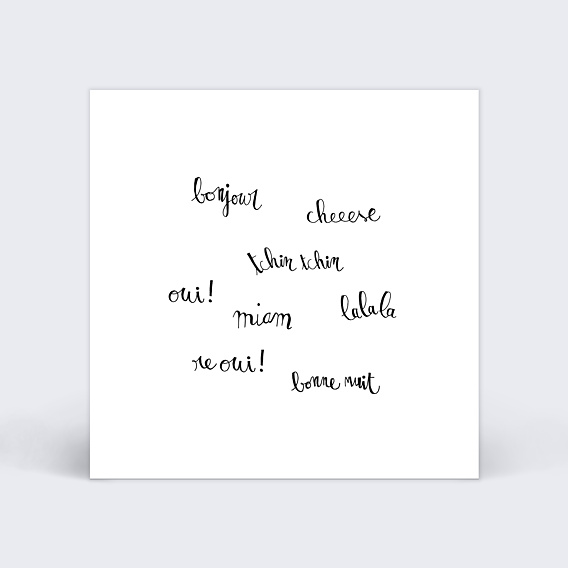 bonjour
cheeese
tchin tchin
oui!
miam
lalala
re oui!
bonne nuit